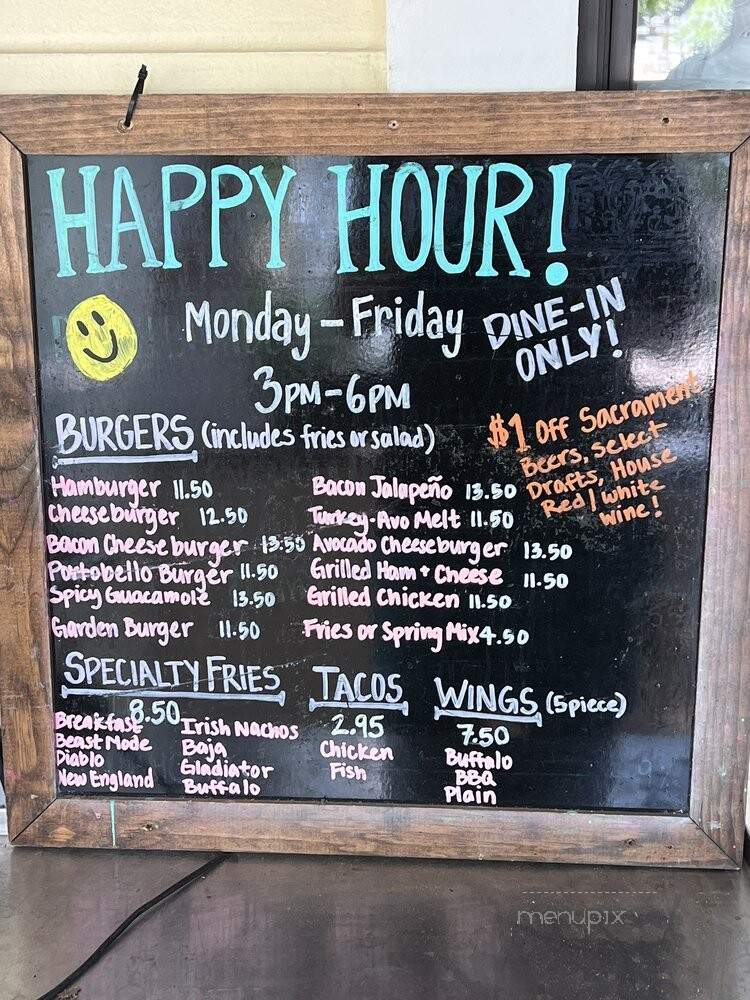 HAPPY HOUR!
Monday - Friday
DINE-IN
ONLY!
3PM-6PM
$1 Off Sacrament
Beers, select
Drafts, House
Red/White
wine!
BURGERS (includes fries or salad)
Hamburger 11.50
Cheeseburger 12.50
Bacon Cheeseburger 13.50
Portobello Burger 11.50
Spicy Guacamole 13.50
Garden Burger 11.50
Bacon Jalapeño 13.50
Turkey-Avo Melt 11.50
Avocado Cheeseburger 13.50
Grilled Ham + Cheese 11.50
Grilled Chicken 11.50
Fries or Spring Mix 4.50
SPECIALTY FRIES
8.50
Breakfast
Beast Mode
Diablo
New England
Irish Nachos
Baja
Gladiator
Buffalo
TACOS
2.95
Chicken
Fish
WINGS (5piece)
7.50
Buffalo
BBQ
Plain
menupix